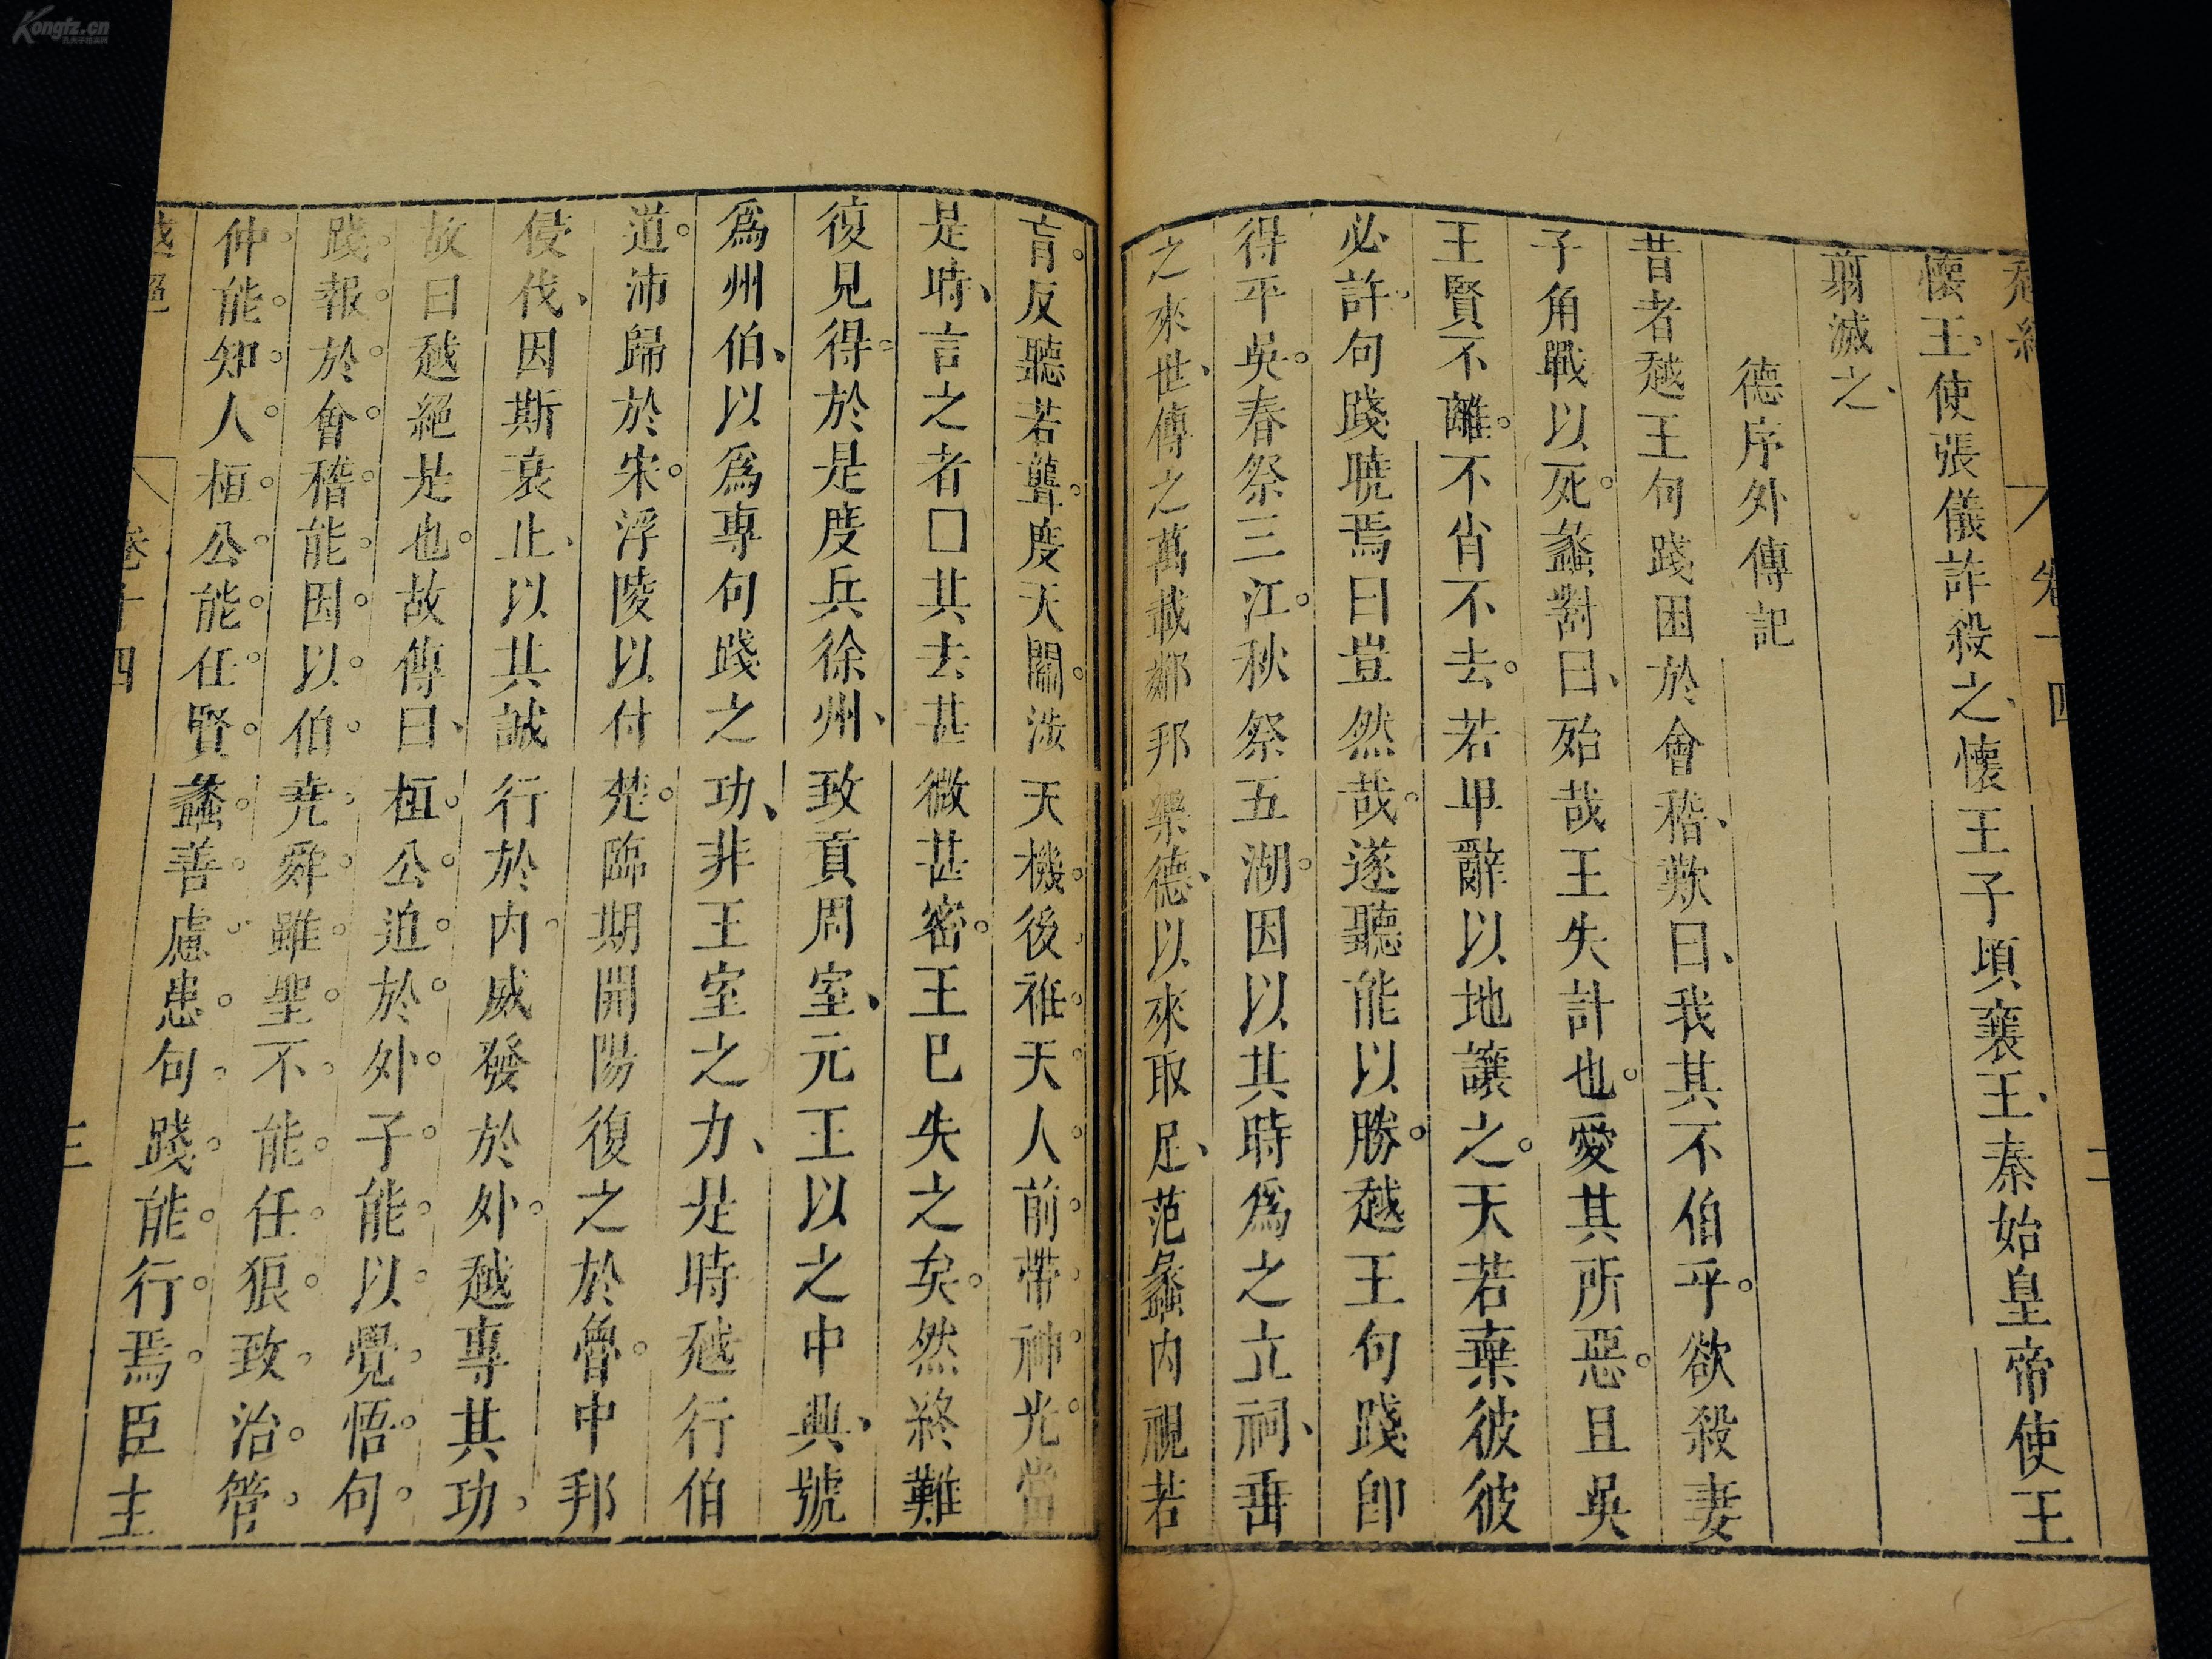 越絕 卷十四 二
懷王。使張儀詐殺之、懷王子頃襄王、秦始皇帝使王
翦滅之、
德序外傳記
昔者越王句踐困於會稽、歎曰、我其不伯乎。欲殺妻
子角戰以死。蠡對曰、殆哉王失計也。愛其所惡。且吳
王賢不離。不肖不去。若卑辭以地讓之。天若棄彼彼
必許。句踐曉焉曰豈然哉。遂聽能以勝。越王句踐即
得平吳。春祭三江。秋祭五湖。因以其時為之立祠、垂
之來世、傳之萬載鄰邦樂德、以來取足、范蠡內視若
盲。反聽若聾。度天關。涉天機。後袵。天人。前帶。神光。當
是時、言之者□其去甚微甚密。王已失之矣。然終難
復見得。於是度兵徐州、致貢周室、元王以之中興、號
為州伯、以為專句踐之功、非王室之力、是時越行伯
道。沛歸於宋。浮陵以付楚。臨期開陽復之於魯。中邦
侵伐、因斯衰止、以其誠行於內。威發於外。越專其功。
故曰越絕是也。故傳曰、桓。公。迫。於。外。子。能。以。覺。悟。句。
踐。報。於。會。稽。能。因。以。伯。堯。舜。雖。聖。不。能。任。狼。致。治。管。
仲。能。知。人。桓。公。能。任。賢。蠡。善。慮。患。句。踐。能。行。焉。臣主
越絕 卷十四 三
Kongfz.cn